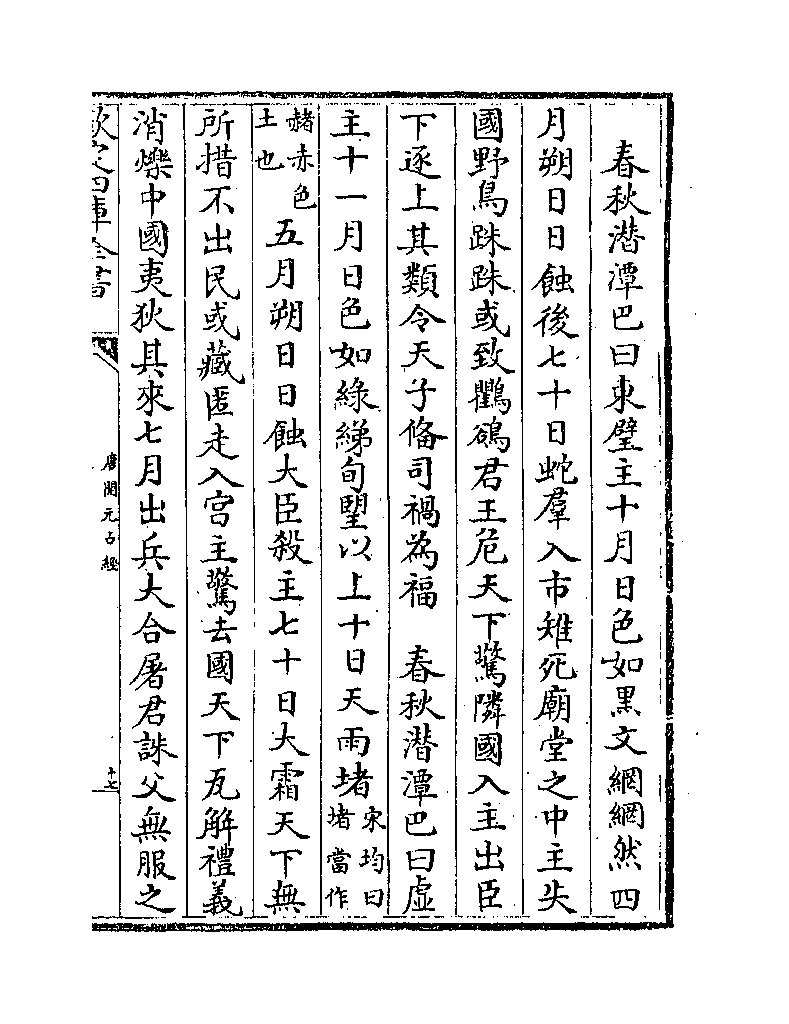 春秋潜潭巴曰東壁主十月日色如黒文網網然四
月朔日日蝕後七十日蛇羣入市雉死廟堂之中主失
國野鳥跦跦或致鸜鵒君王危天下驚隣國入主出臣
下逐上其類令天子偹司禍為福　春秋潜潭巴曰虚
主十一月日色如緑綈旬朢以上十日天雨堵宋均曰堵當作
赭赤色土也五月朔日日蝕大臣殺主七十日大霜天下無
所措不出民或藏匿走入宫主驚去國天下瓦解禮義
消爍中國夷狄其來七月出兵大合屠君誅父無服之
欽定四庫全書
唐開元占經
十七